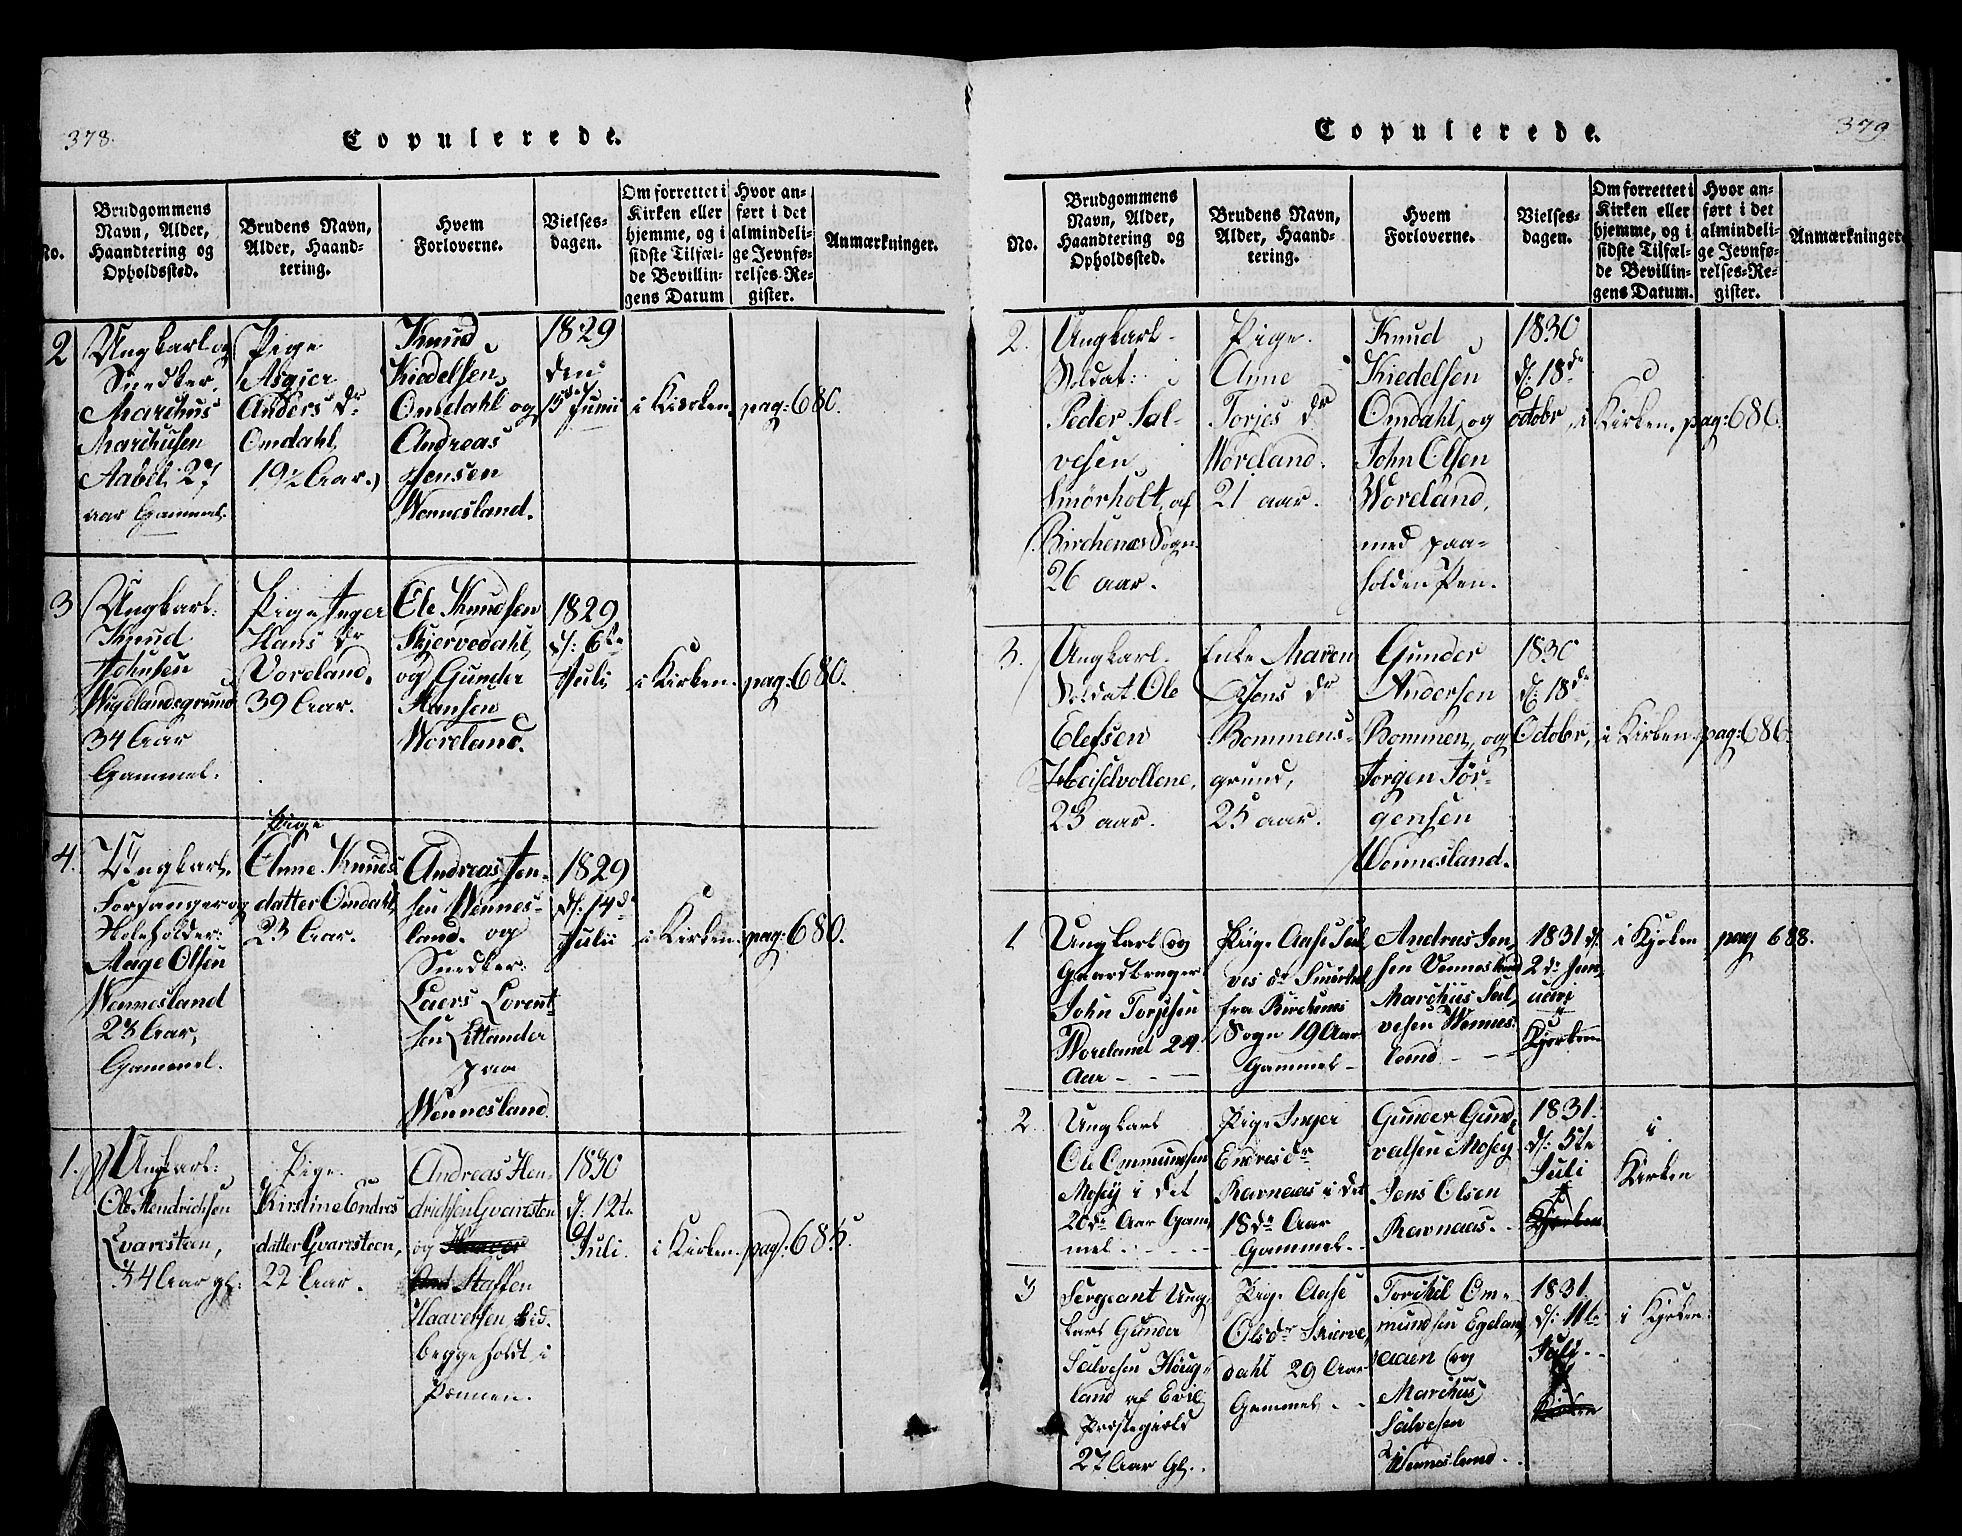 378.
Copulerede.
No.
Brudgommens
Navn, Alder,
Haandtering og
Opholdssted.
Brudens Navn,
Alder, Haand-
tering.
Hvem
Forloverne.
Vielses-
dagen.
Om forrettet i
Kirken eller
hjemme, og i
sidste Tilfæl-
de Bevillin-
gens Datum
Hvor an-
ført i det
almindeli-
ge Jevnfø-
relses-Re-
gister.
Anmærkninger.
2
Ungkarl og
Snedker,
Marchus
Marchusen
Aabel. 27
aar Gammel.
Pige
Asgier
Anders dr
Omdahl,
19½ Aar.
Knud
Kiedelsen
Omdahl og
Andreas
Jensen
Wennesland.
1829
den
15de Junii
i Kirken.
pag: 680.
3
Ungkarl.
Knud
Johnsen
Wigelandsgrund
34 Aar
Gammel.
Pige Inger
Hans dr
Voreland.
39 Aar.
Ole Knudsen
Skjervedahl,
og Gunder
Hansen
Woreland.
1829
d: 6te
Juli
i Kirken.
pag: 680.
4.
Ungkarl.
Forsanger og
Skoleholder:
Aage Olsen
Wennesland
23 Aar,
Gammel.
Pige
Anne Knuds
datter Omdahl,
23 Aar.
Andreas Jen-
sen Wennes-
land. og
Snedker:
Laers Lorent-
sen Littander
paa
Wennesland.
1829
d: 14de
Julii
i Kirken.
pag: 680.
1.
Ungkarl:
Ole Hendrichsen
Qvaresteen,
34 Aar gl:
Pige.
Kirstine Endres
datter Qvaresteen,
22 Aar.
Andreas Hen-
drichsen Qvaresteen
og
Staffen
Haavorsen, ibid.
begge holdt i
Pennen.
1830
d: 12te
Juli.
i Kirken.
pag: 685.
379
Copulerede.
No.
Brudgommens
Navn, Alder,
Haandtering og
Opholdssted.
Brudens Navn,
Alder, Haand-
tering.
Hvem
Forloverne.
Vielses-
dagen.
Om forrettet i
Kirken eller
hjemme, og i
sidste Tilfæl-
de Bevillin-
gens Datum.
Hvor an-
ført i det
almindeli-
ge Jevnfø-
relses-Re-
gister.
Anmærkninger.
2.
Ungkarl-
Soldat:
Peder Sal-
vesen
Smørholt, af
Birchenæs Sogn.
26 aar.
Pige.
Anne
Torjes dr
Woreland.
21 aar.
Knud
Kiedelsen
Omdahl, og
John Olsen
Woreland,
med paa-
holden Pen.
1830
d: 18de
octobr,
i Kirken.
pag: 686.
3.
Ungkarl.
Soldat. Ole
Elefsen
Heiselvollene,
23 aar.
Enke Maren
Jens dr
Bommens-
grund,
25 aar.
Gunder
Andersen
Bommen, og
Jorgen Jør-
gensen
Wennesland.
1830
d: 18de
Octobr,
i Kirken.
pag: 686.
1.
Ungkarl og
Gaardbruger
John Torjesen
Woreland 24.
Aar - - -
Pige Aase Sal,
ves dr Smørhol
fra Birchenes
Sogn 19 Aar
Gammel -
Andreas Jen,
sen Venneslund
Marchus Sal,
vesen Wennes.
land - -
1831 d:
2de Jan,
uari
i
Kjerken
i Kjrken
pag 688.
2
Ungkarl
Ole Ommundsen
Mosey i det
20de Aar Gam,
mel. - - - -
Pige Inger
Endres dr
Ravnaas i det
18de Aar
Gammel. -
Gunder Gund,
valsen Mosey
Jens Olsen
Ravnaas. -
1831.
d: 5te
Juli
Kjerken
i
Kirken
3
Sergeant Ung,
karl Gunder
Salvesen Houg,
land af Evie
Præstegield
27 Aar Gl.
Pige Aase
Olsdr Skierve,
dahl 29 Aar
Gammel - -
Torchel Om-
mundsen Egeland,
aaen og
Marchus
Salvesen
Wennesland. -
1831.
d: 11te
Juli - -
Kirken
i Kjrken.